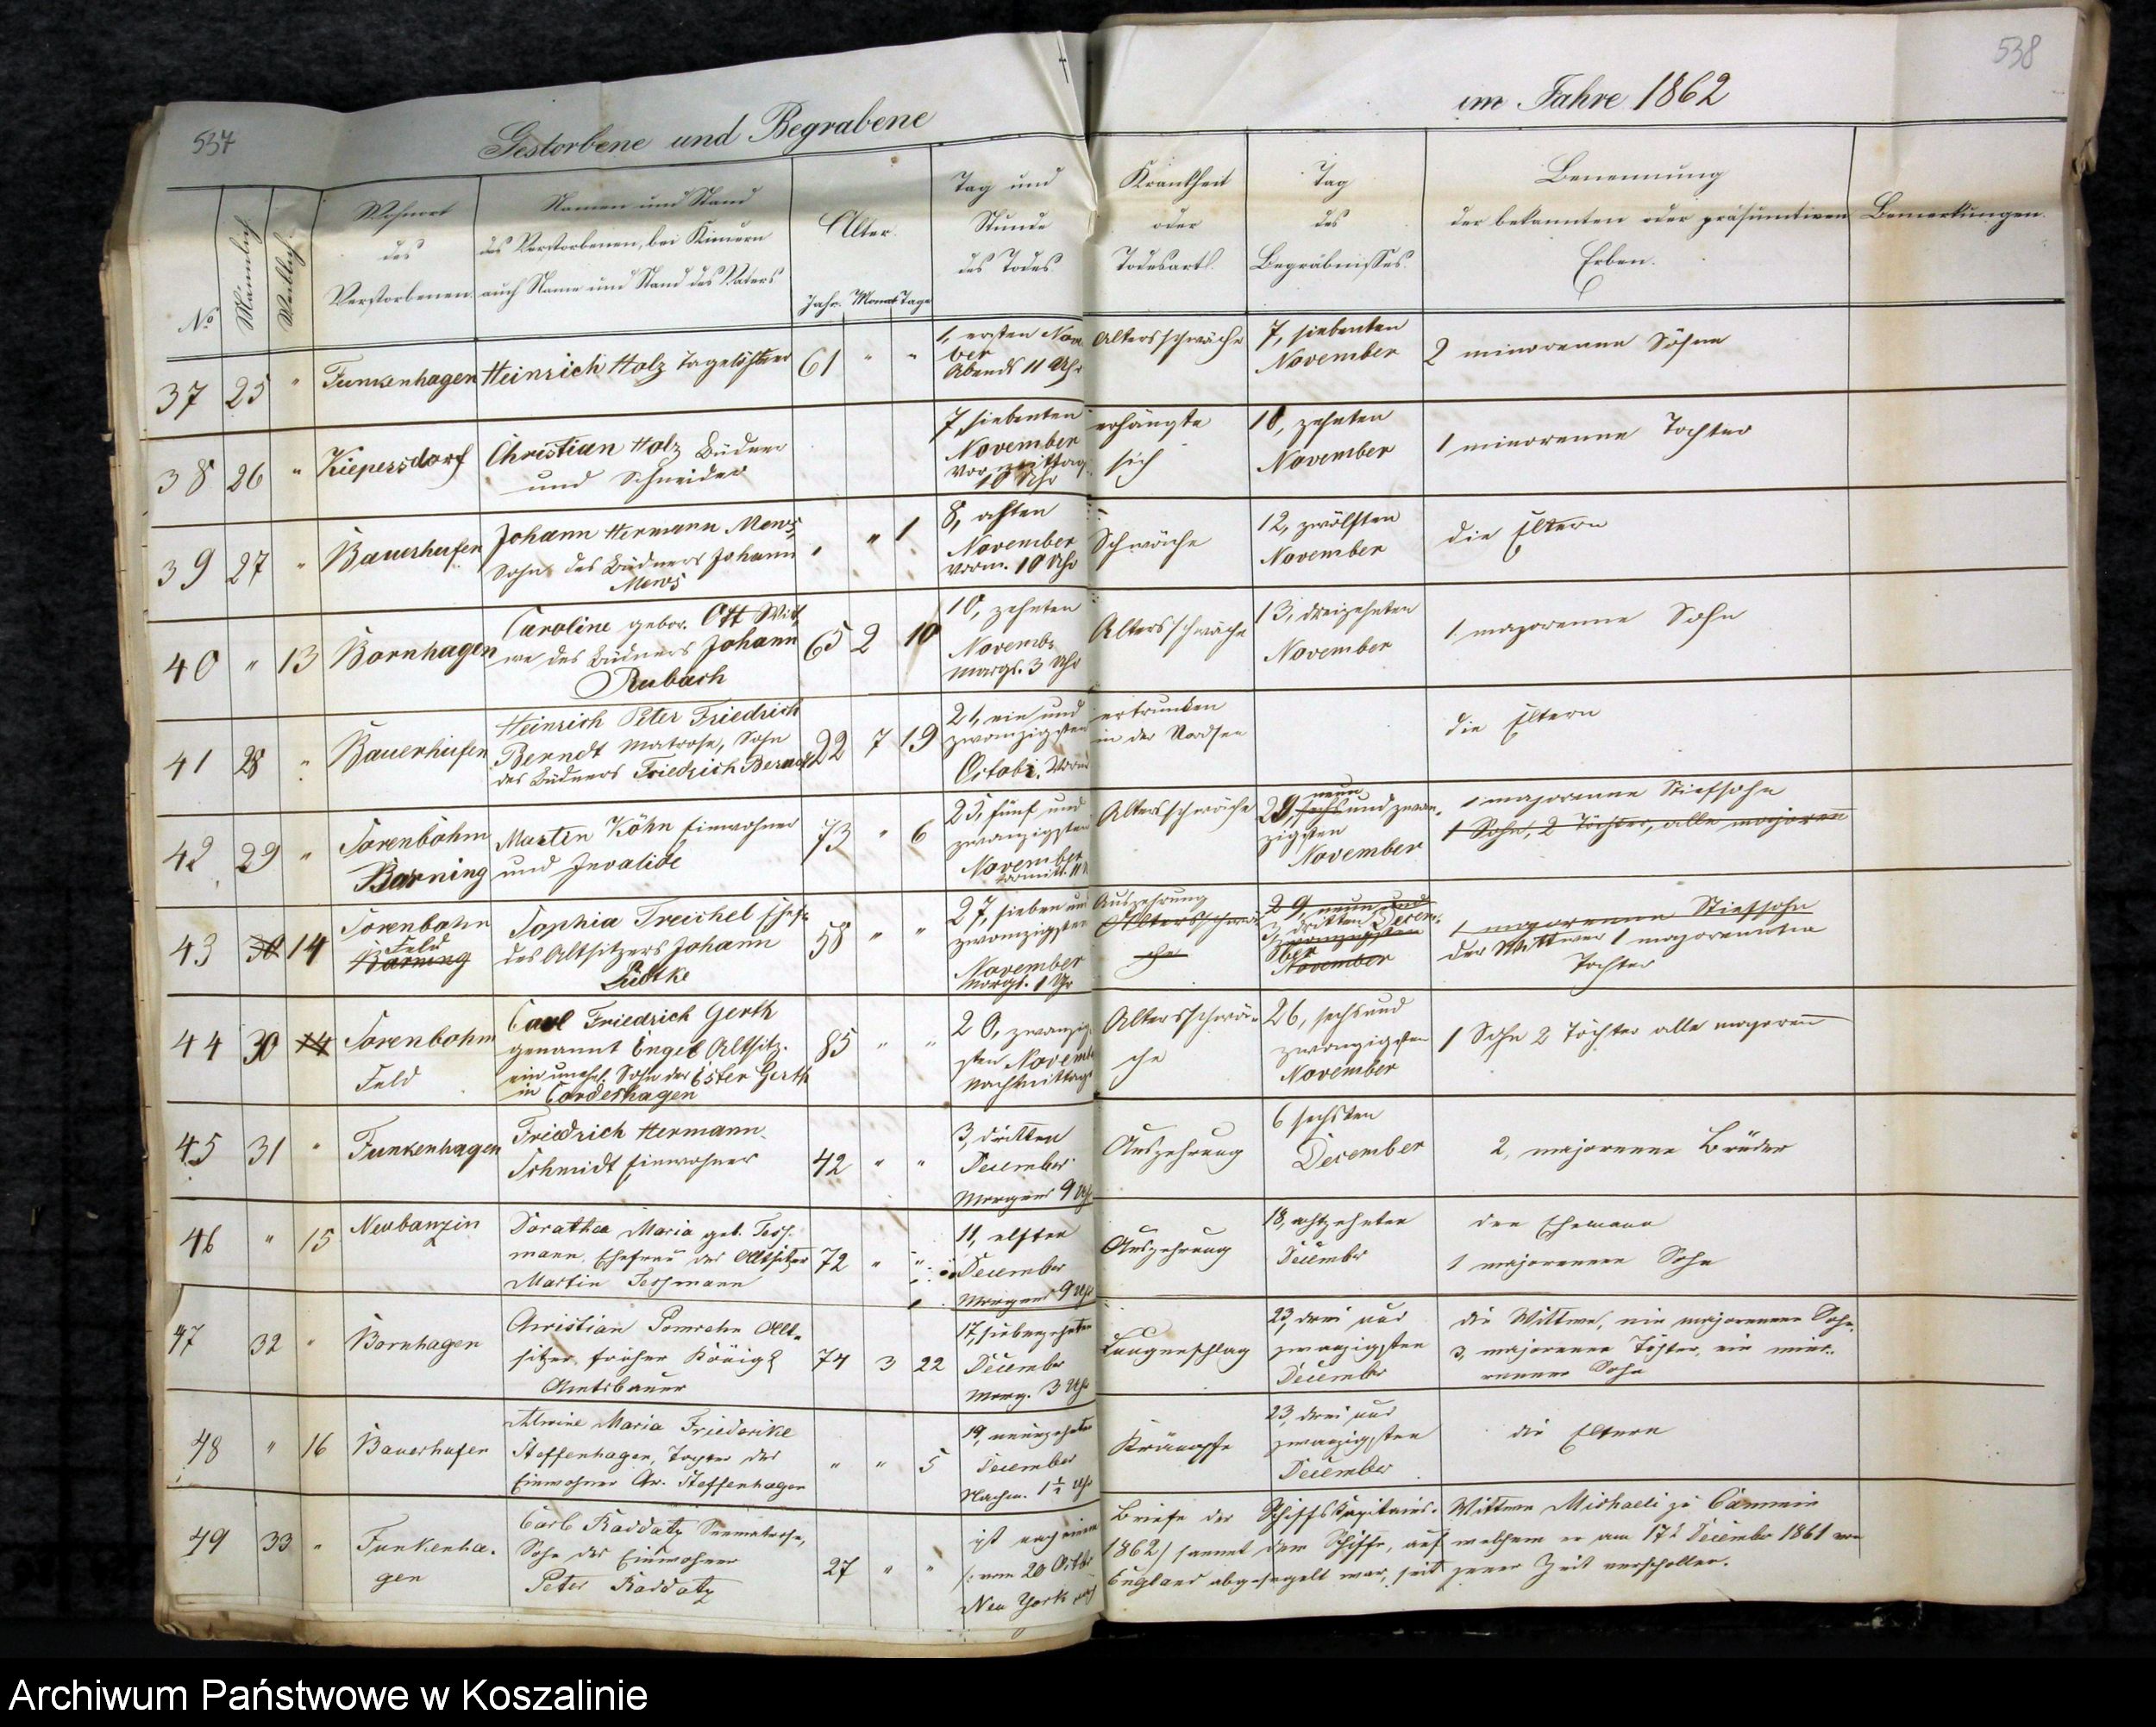 537
538
Gestorbene und Begrabene
im Jahre 1862
No
Männlich.
Weiblich.
Wohnort
des
Verstorbenen.
Namen und Stand
des Verstorbenen, bei Kindern
auch Name und Stand des Vaters
Alter.
Jahr. Monat Tage
Tag und
Stunde
des Todes.
Krankheit
oder
Todesart.
Tag
des
Begräbnisses.
Benennung
der bekannten oder präsumtiven
Erben.
Bemerkungen.
37 25 " Funkenhagen
Heinrich Holz Tagelöhner
61 " "
1, ersten Novem
ber
Abends 11 Uhr
Altersschwäche
7, siebenten
November
2 minorenne Söhne
38 26 " Kiepersdorf
Christian Holz Büdner
und Schneider
7, siebenten
November
Vormittag
10 Uhr
erhängte
sich
10, zehnten
November
1 minorenne Tochter
39 27 " Bauerhufen
Johann Hermann Mews,
Sohn des Büdners Johann
Mews
" " 1
8, achten
November
Vorm. 10 Uhr
Schwäche
12, zwölften
November
die Eltern
40 " 13 Bornhagen
Caroline gebor. Ott Witt
we des Büdners Johann
Rubach
65 2 10
10, zehnten
Novembr
Morgs. 3 Uhr
Altersschwäche
13, dreizehnten
November
1 majorenne Sohn
41 28 " Bauerhufen
Heinrich Peter Friedrich
Berndt Matrose, Sohn
des Büdners Friedrich Berndt
22 7 19
21, ein und
zwanzigsten
Octobr. Vorm
ertrunken
in der Nordsee
die Eltern
42 29 " Sorenbohm
Barning
Martin Köhn Einwohner
und Invalide
73 " 6
25, fünf und
zwanzigsten
November
Vormitt. 11 U
Altersschwäche
neun
29, sechs und zwan-
zigsten
November
1 majorenne Stiefsohn
1 Sohn, 2 Töchter, alle majorenn
43 30 14 Sorenbohm
Feld
Barning
Sophia Treichel Ehefr.
des Altsitzers Johann
Lüdtke
58 " "
27, sieben und
zwanzigsten
November
Morgs. 1 Uhr
Auszehrung
Altersschwä-
che
29, neun und
3, dritten Decem-
zwanzigsten
ber
November
1 majorenne Stiefsohn
der Wittwer 1 majorenne
Tochter
44 30 14 Sorenbohm
Feld
Carl Friedrich Gerth
genannt Engel Altsitz.
ein unehel. Sohn der Ester Gerth
in Cordeshagen
85 " "
20, zwanzig-
sten Novembr
Nachmittags
Altersschwä-
che
26, sechs und
zwanzigsten
November
1 Sohn 2 Töchter alle majorenn
45 31 " Funkenhagen
Friedrich Hermann
Schmidt Einwohner
42 " "
3, dritten
December
Morgens 9 Uhr
Auszehrung
6 sechsten
December
2, majorenne Brüder
46 " 15 Neubanzin
Dorathea Maria geb. Tess-
mann, Ehefrau des Altsitzer
Martin Tessmann
72 " "
11, elften
December
Morgens 9 Uhr
Auszehrung
18, achtzehnten
Decembr
den Ehemann
1 majorennen Sohn
47 32 " Bornhagen
Christian Pomrehn Alt-
sitzer früher Königl
Amtsbauer
74 3 22
17, siebenzehnten
Decembr
Morg. 3 Uhr
Lungenschlag
23, drei und
zwanzigsten
Decembr
die Wittwe, ein majorenner Sohn,
3, majorenne Töchter, ein mino-
renner Sohn
48 " 16 Bauerhufen
Alwine Maria Friederike
Steffenhagen, Tochter des
Einwohner Chr. Steffenhagen
" " 5
19, neunzehnten
December
Nachm. 1½ Uhr
Krämpfe
23, drei und
zwanzigsten
December
die Eltern
49 33 " Funkenha-
gen
Carl Raddatz Seematrose,
Sohn des Einwohner
Peter Raddatz
27 " "
ist nach einem Briefe der Schiffskapitains-Wittwe Michaeli zu Cammin
/: vom 20 Octbr 1862/ sammt dem Schiffe, auf welchem er am 17t December 1861 von
New York nach England abgesegelt war, seit jener Zeit verschollen.
Archiwum Państwowe w Koszalinie